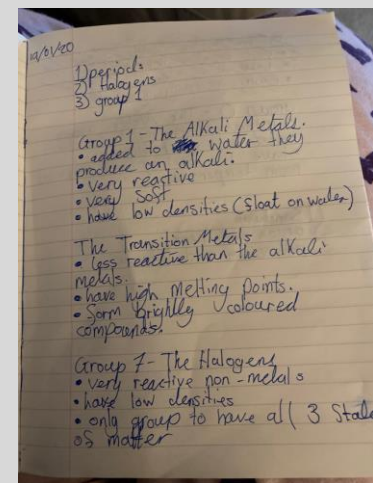 10/01/20
1) periods
2) Halogens
3) group 1
Group 1 - The Alkali Metals.
• added to water they
produce an alkali.
• very reactive
• very soft
• have low densities (float on water)
The Transition Metals
• less reactive than the alkali
metals.
• have high melting points.
• form brightly coloured
compounds.
Group 7 - The Halogens
• very reactive non-metals
• have low densities
• only group to have all 3 State
of matter